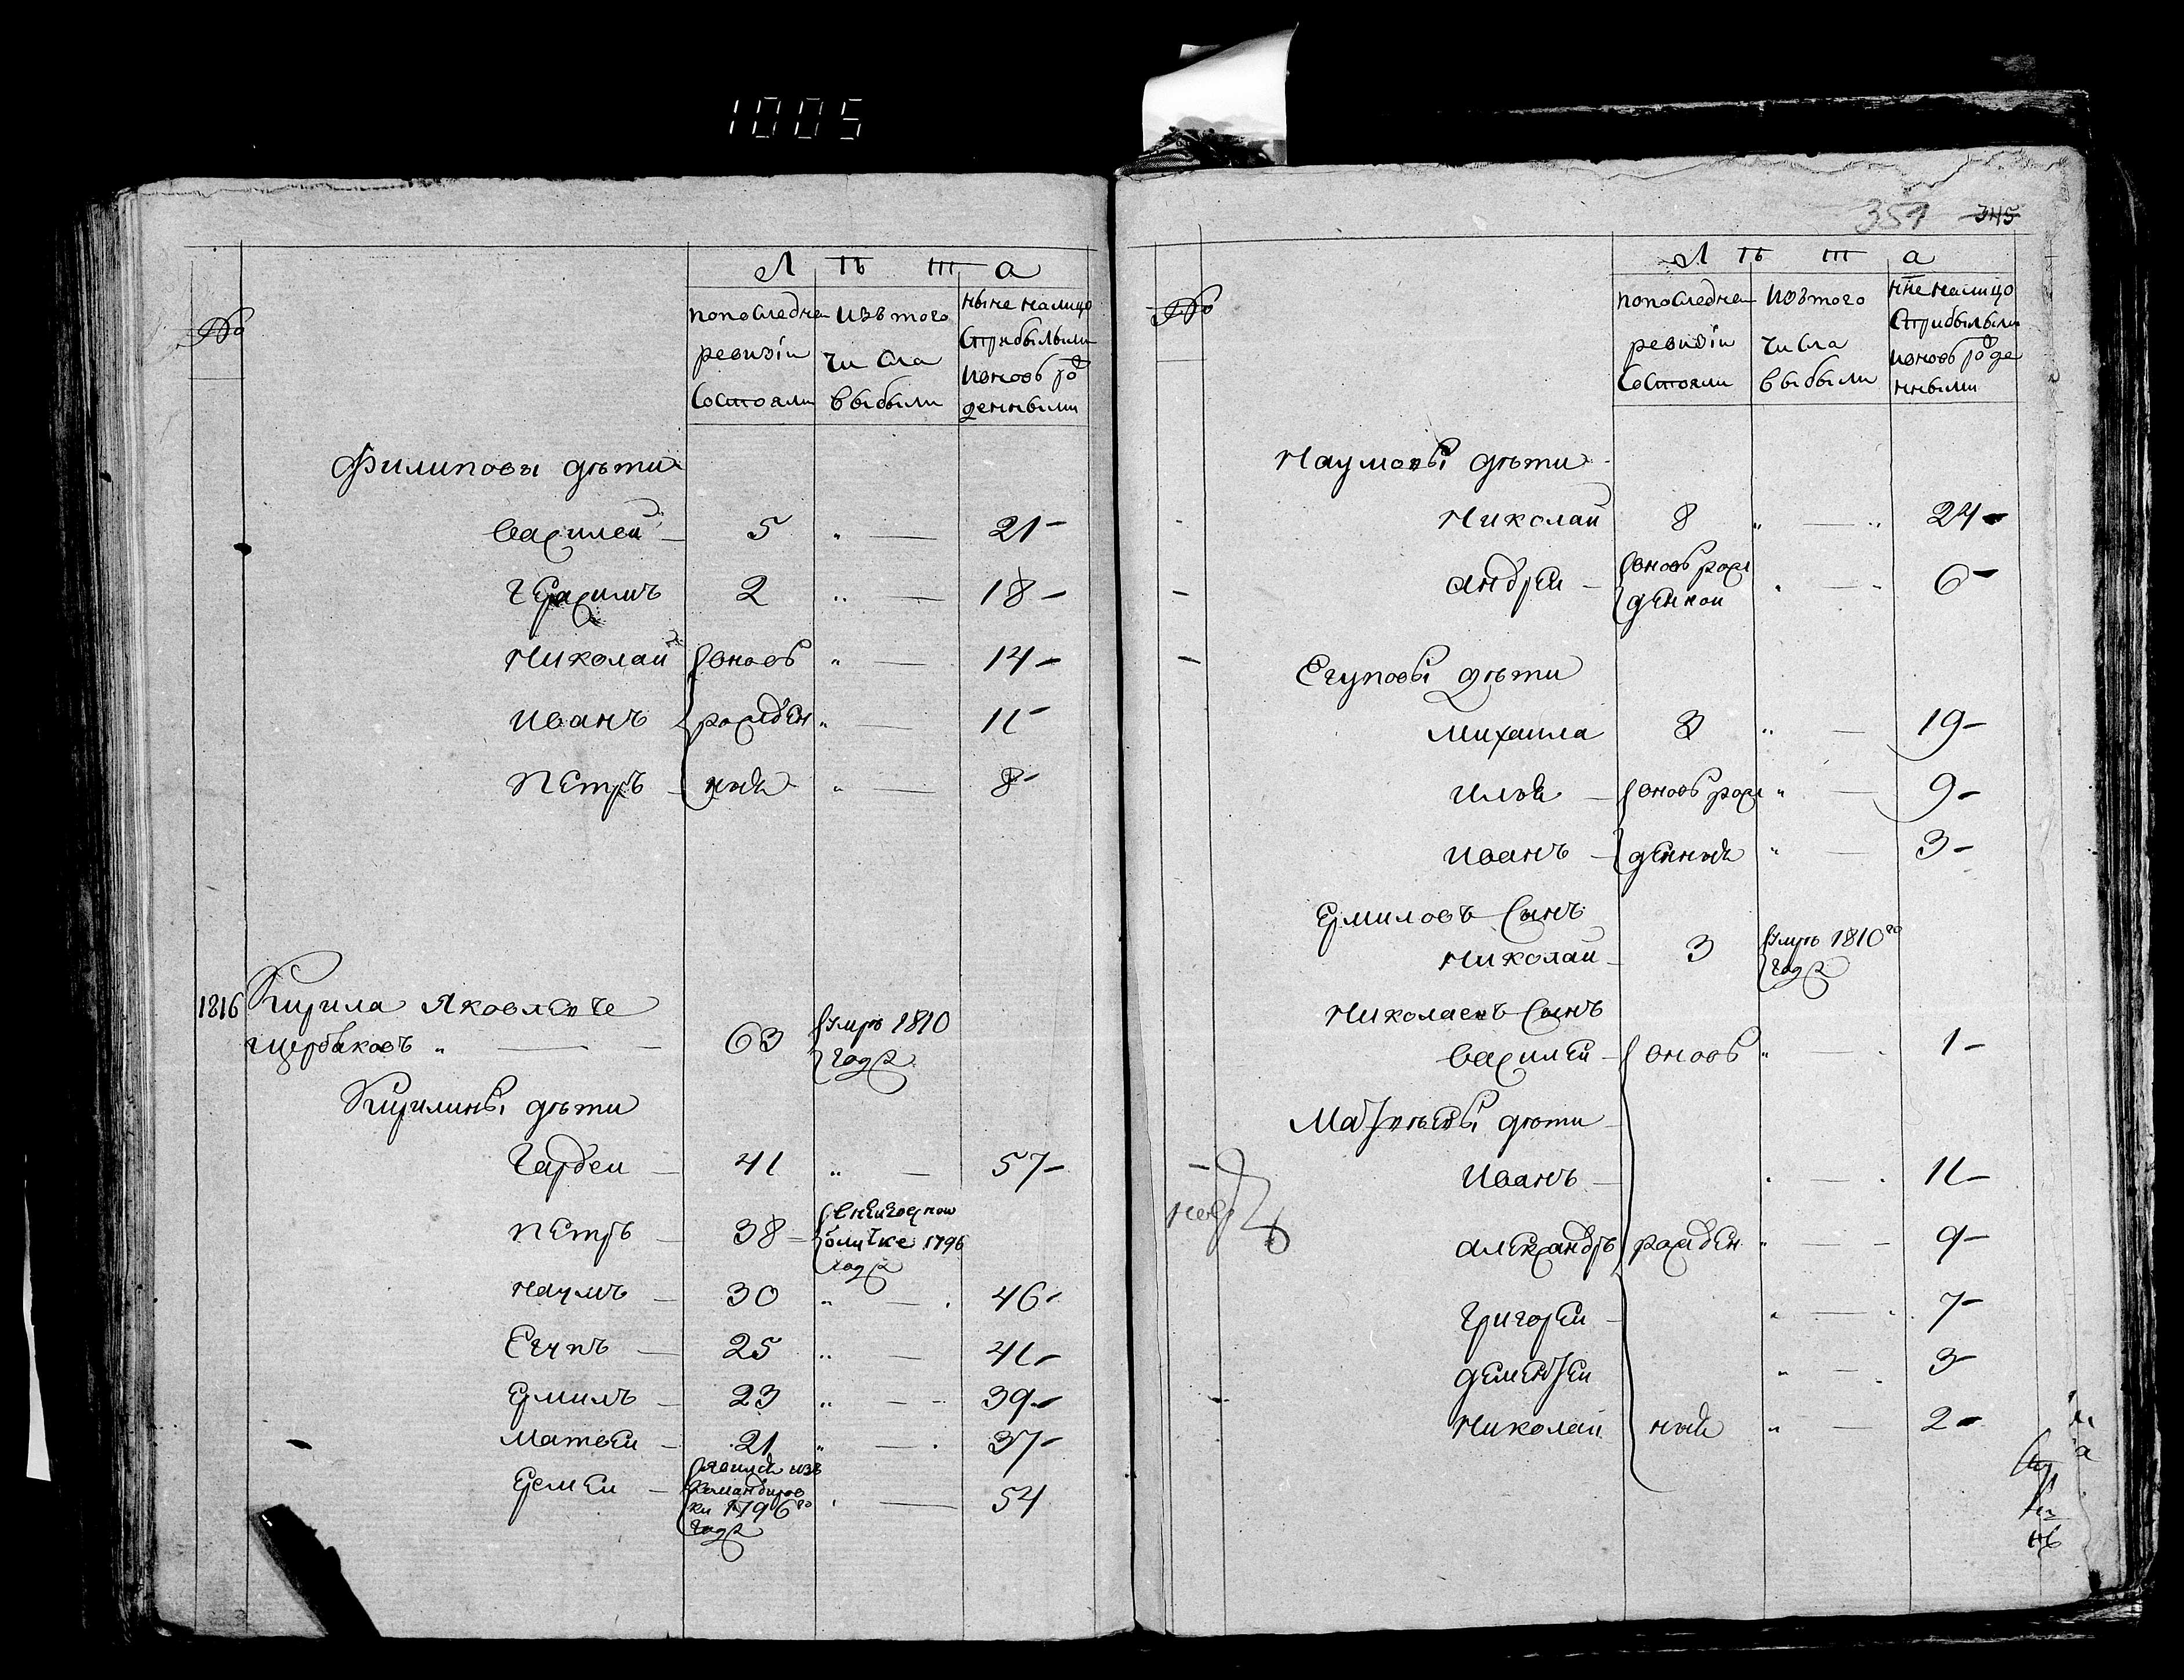 1005
№
Л ѣ т а
попоследнеи
ревизіи
состояли
изътого
числа
выбыли
ныне налицо
сприбылыми
ивновь ро
денными
Филиповы дѣти
Василей 5 „ — 21
Герасимъ 2 „ — 18
Николай вновь „ — 14
Иванъ рожден „ — 11
Петръ ныя „ — 8
1816 Кирила Яковлевъ
Щербаковъ „ — 63 умрѣ 1810
года
Кирилины дѣти
Гардеи 41 „ — 57
Петръ 38
1796
года
Наумъ 30 „ — 46
Егупъ 25 „ — 41
Ермилъ 23 „ — 39
Матвеи 21 „ — 37
Еремеи явился изъ
командиров
ки 1796го
года „ — 54
351 345
№
Л ѣ т а
попоследнеи
ревизіи
состояли
изътого
числа
выбыли
нне налицо
сприбылыми
ивновь роде
нными
Наумовы дѣти
Николай 8 „ — 24
Андреи вновь рож
денной „ — 6
Егуповы дѣти
Михаила 3 „ — 19
Илья вновь рож „ — 9
Иванъ денныя „ — 3
Ермиловъ сынъ
Николай 3 умрѣ 1810го
года
Николаевъ сынъ
Василеи вновь „ — 1
Матвѣевы дѣти
Иванъ „ — 11
Александръ рожден „ — 9
Григореи „ — 7
Деменtеи „ — 3
Николай ныя „ — 2